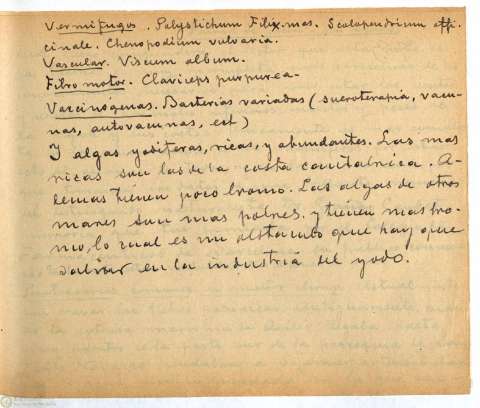 Vermífugos. Polystichum Filix mas. Scolopendrium offi-
cinale. Chenopodium vulvaria.
Vascular. Viscum album.
Fibro motor. Claviceps purpurea.
Varcinógenas. Bacterias variadas (sueroterapia, vacu-
nas, autovacunas, est)
Y algas yodiferas, ricas, y abundantes. Las mas
ricas son las de la costa cantabrica. A-
demas tienen poco bromo. Las algas de otros
mares son mas pobres. y tienen mas bro-
mo, lo cual es un obstaculo que hay que
salvar en la industria del yodo.